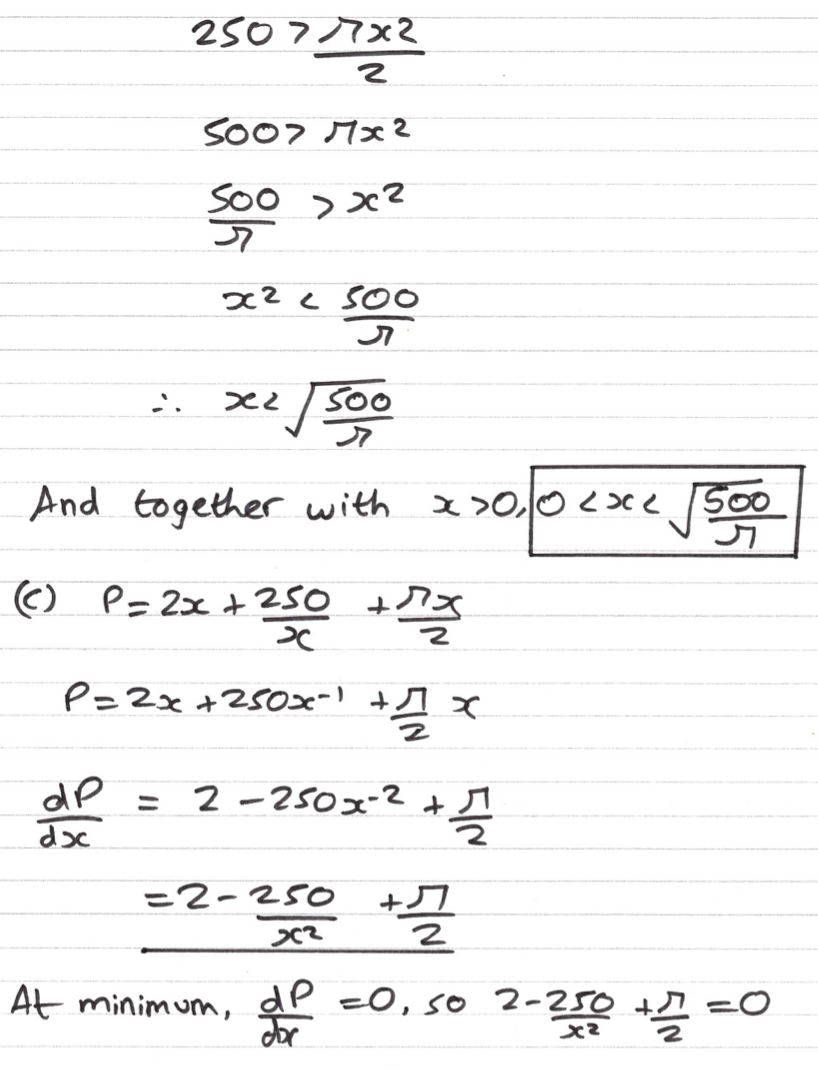 250 > πx²/2
500 > πx²
500/π > x²
x² < 500/π
∴ x < √(500/π)
And together with x > 0, 0 < x < √(500/π)
(c) P = 2x + 250/x + πx/2
P = 2x + 250x⁻¹ + π/2 x
dP/dx = 2 - 250x⁻² + π/2
= 2 - 250/x² + π/2
At minimum, dP/dx = 0, so 2 - 250/x² + π/2 = 0